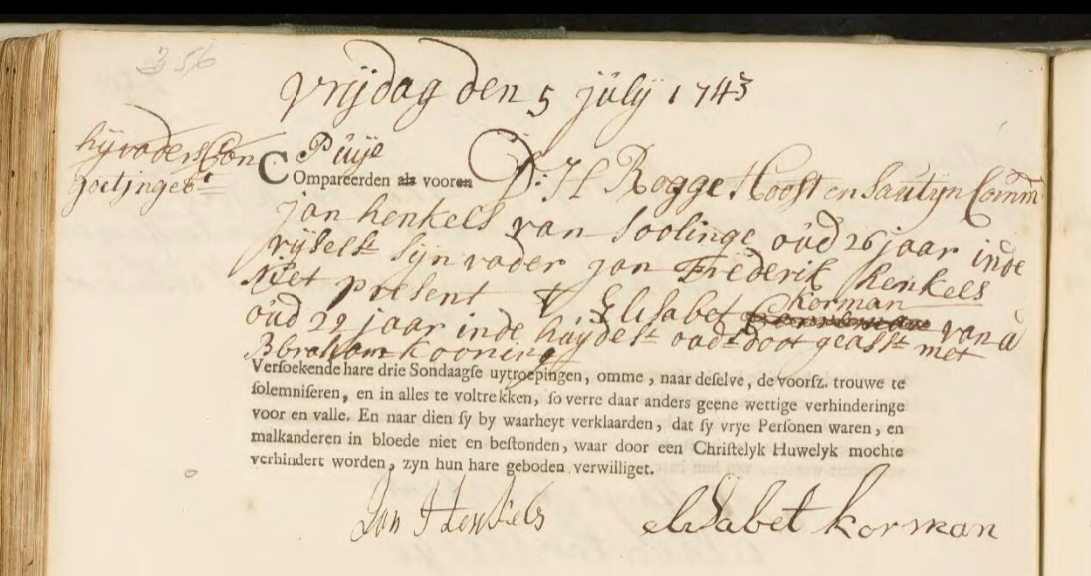 356
vrijdag den 5 july 1743
hij vaders Con
goetingeb:
Puije
COmpareerden als vooren D: H Rogge Hooft en Sautijn Comm
jan henkels van Soolinge oud 26 jaar inde
vijselst sijn vader jan Frederik henkels
Niet present & Elisabet Korman van A
oud 22 jaar inde huydest ouds doot geasst met
Abraham Kooning
Versoekende hare drie Sondaagse uytroepingen, omme, naar deselve, de voorsz. trouwe te
solemniseren, en in alles te voltrekken, so verre daar anders geene wettige verhinderinge
voor en valle. En naar dien sy by waarheyt verklaarden, dat sy vrye Personen waren, en
malkanderen in bloede niet en bestonden, waar door een Christelyk Huwelyk mochte
verhindert worden, zyn hun hare geboden verwilliget.
Jan Henkels
elisabet korman